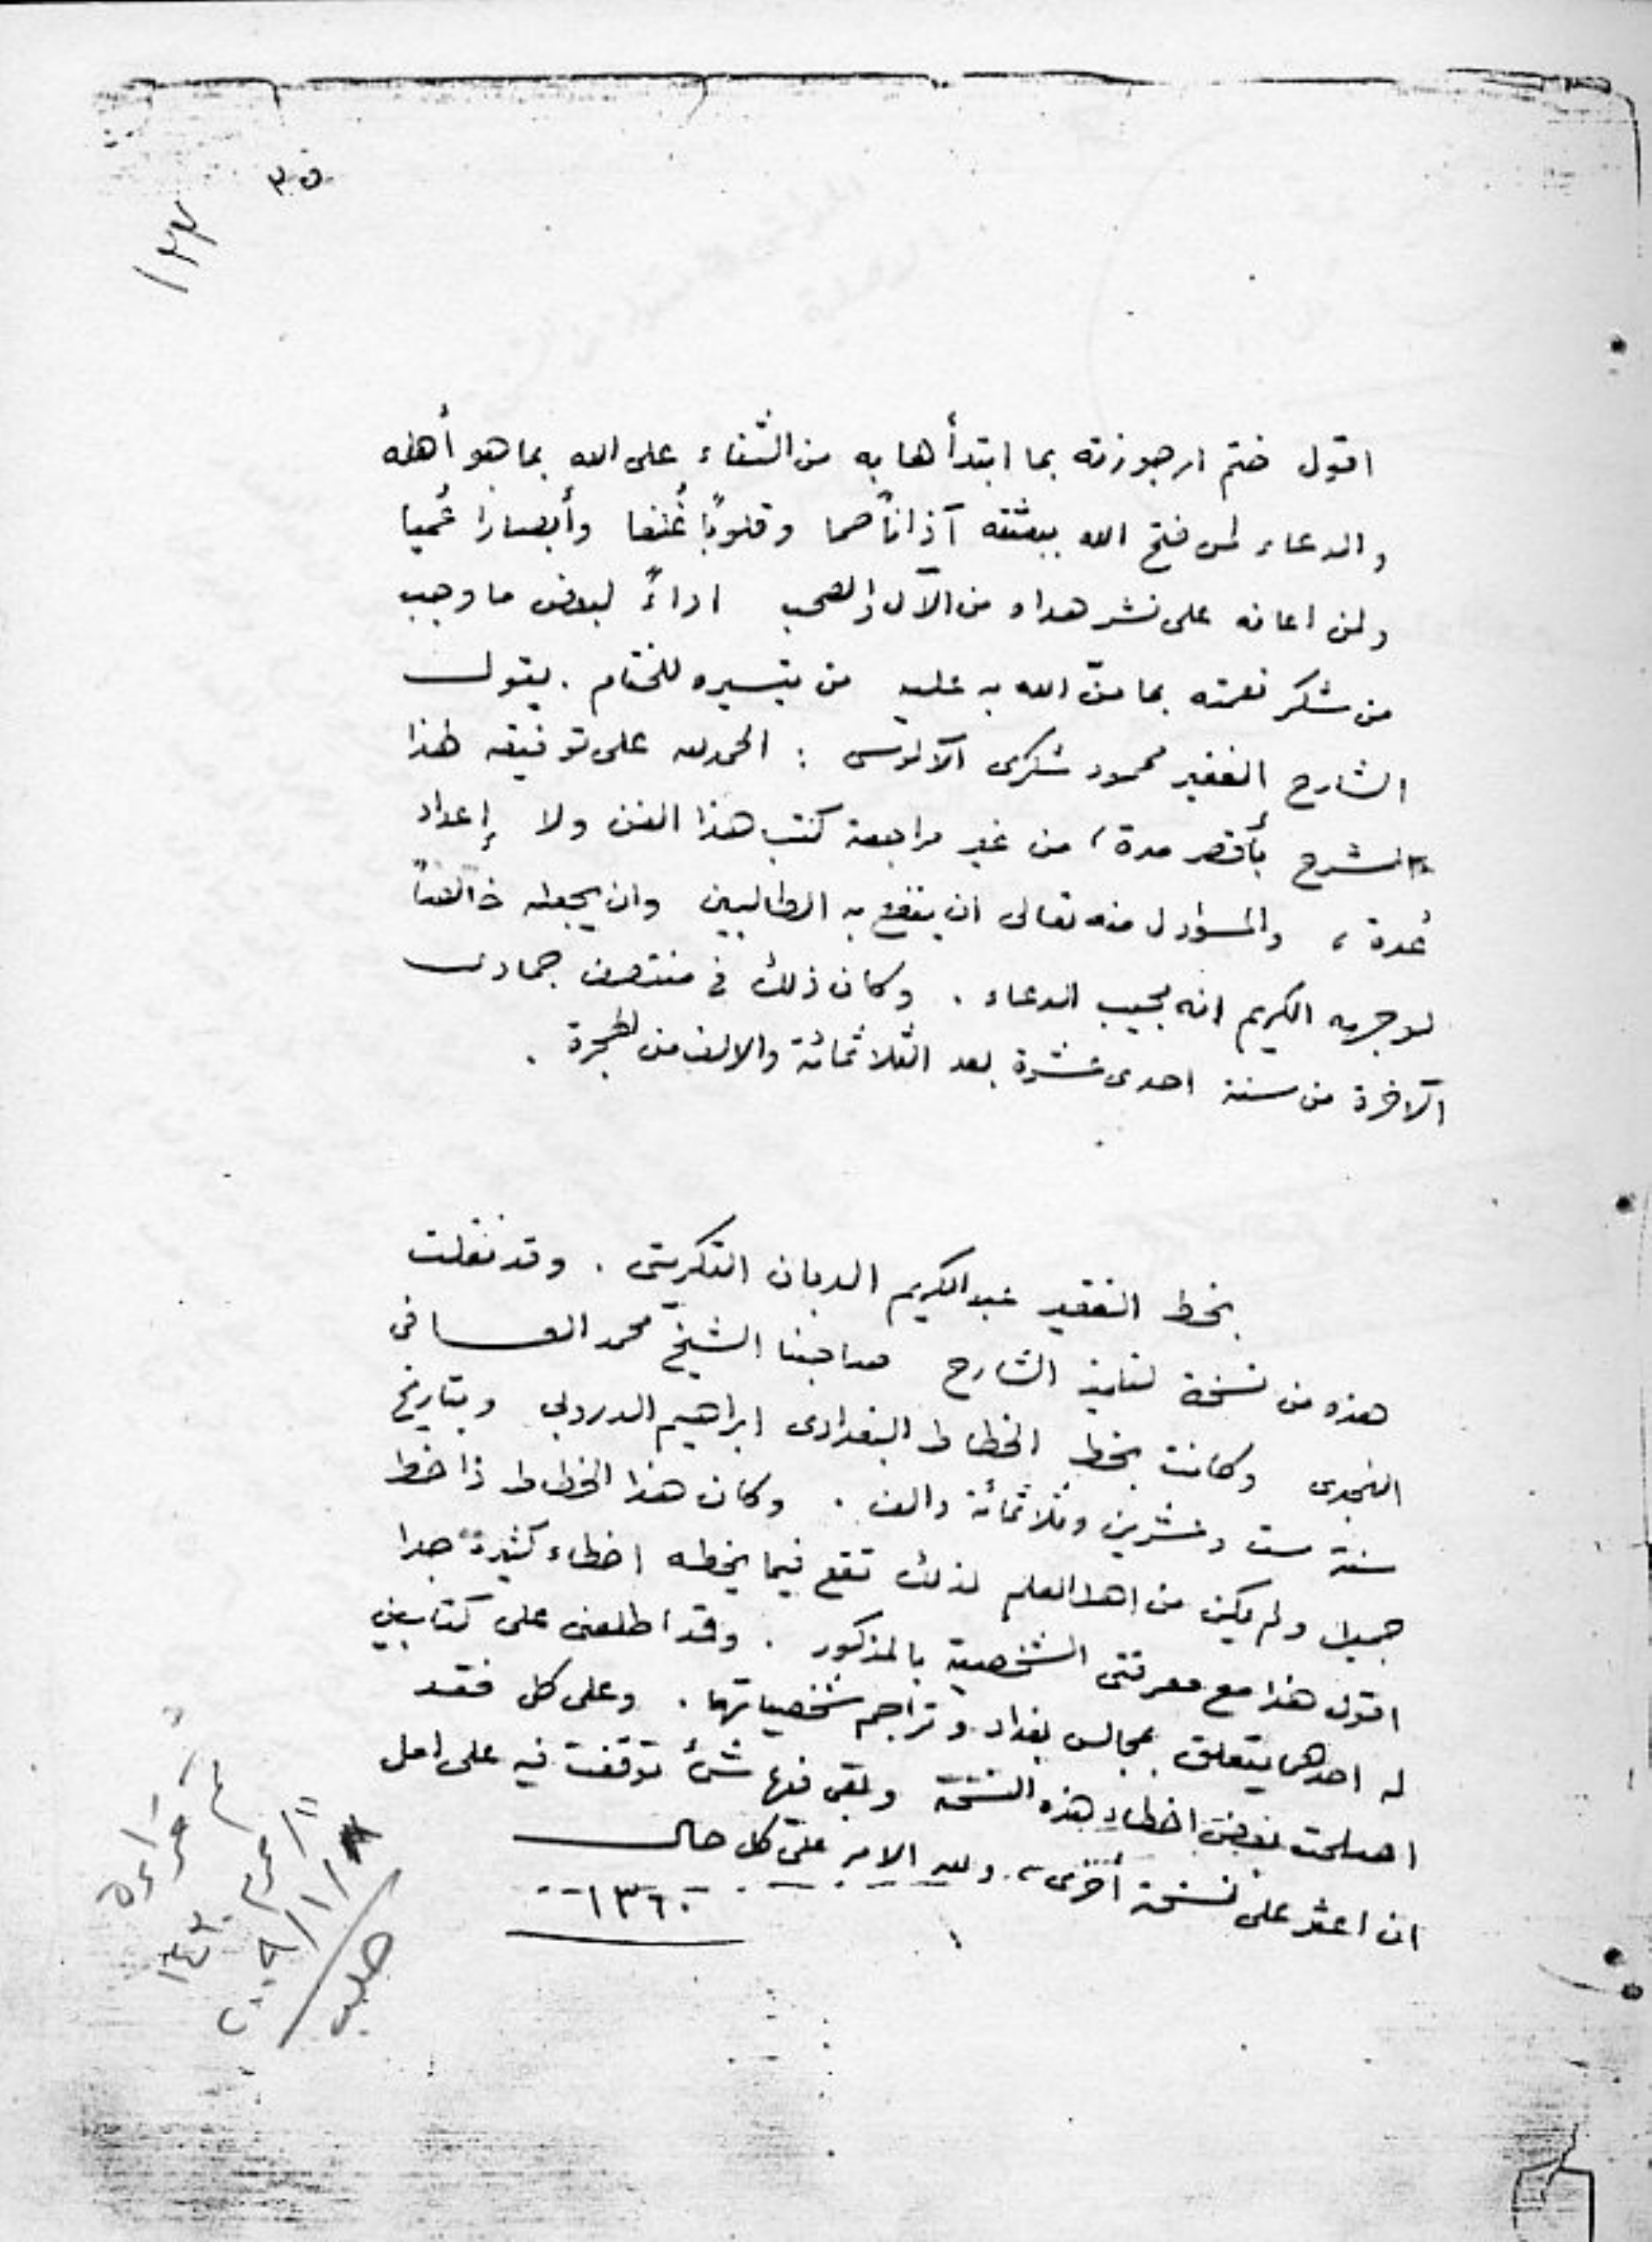 ١٢٣
اقول ختم ارجوزته بما ابتدأها به من الثناء على الله بما هو أهله
والدعاء لمن فتح الله ببعثته آذاناً صما وقلوباً غُلفا وأبصارا عُميا
ولمن اعانه على نشر هداه من الآل والصحب اداءً لبعض ما وجب
من شكر نعمته بما منّ الله به عليه من تيسيره للختام . يقول
الشارح الفقير محمود شكرى الآلوسى : الحمد لله على توفيقه لهذا
الشرح بأقصر مدة ، من غير مراجعة كتب هذا الفن ولا إعداد
عُدة ، والمسؤول منه تعالى ان ينفع به الطالبين وان يجعله خالصاً
لوجهه الكريم انه مجيب الدعاء . وكان ذلك في منتصف جمادى
الآخرة من سنة احدى عشرة بعد الثلاثمائة والالف من الهجرة .
بخط الفقير عبدالكريم الدبان التكريتى . وقد نقلت
هذه من نسخة لتلميذ الشارح صاحبنا الشيخ محمد العسافى
النجدى وكانت بخط الخطاط البغدادى ابراهيم الدروبي وبتاريخ
سنة ست وعشرين وثلاثمائة والف . وكان هذا الخطاط ذا خط
جميل ولم يكن من اهل العلم لذلك تقع فيما يخطه اخطاء كثيرة جدا
اقول هذا مع معرفتى الشخصية بالمذكور . وقد اطلعنى على كتابين
له احدهما يتعلق بمجالس بغداد وتراجم شخصياتها . وعلى كل فقد
اصلحت بعض اخطاء هذه النسخة وبقى فيها شئ توقفت فيه على امل
ان اعثر على نسخة أخرى ، ولله الامر على كل حال
١٣٦٠
تم قراءة
١١/محرم ١٤٣٠
٢٠٠٩/١/٨
حلب